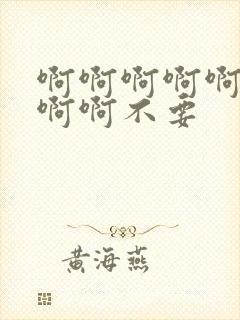 啊啊啊啊啊
啊啊不要
黄海燕